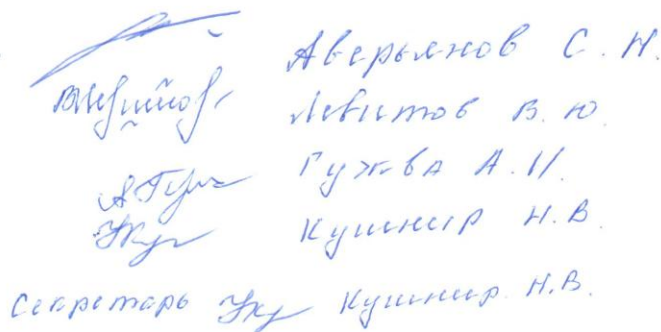 Аверьянов С. Н.
Левитов В. Ю.
Гужва А. И.
Кушнир Н. В.
Секретарь Кушнир Н. В.